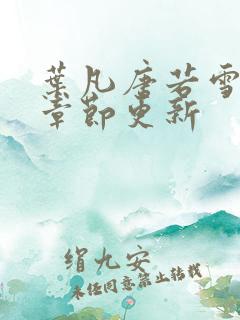 葉凡唐若雪
章節更新
缉九安
未经同意禁止转载